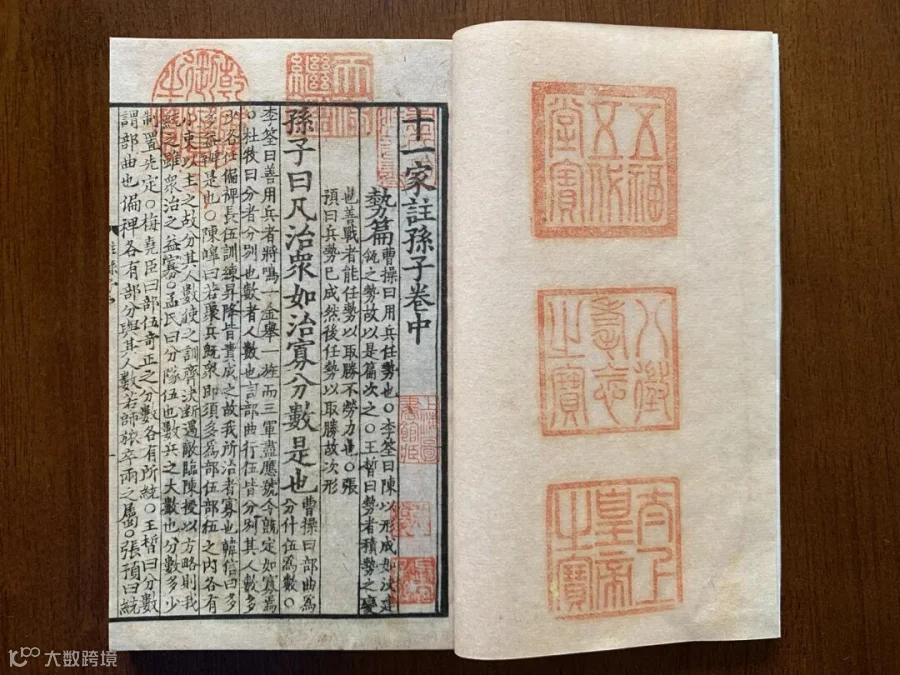 五福五代堂寶
八徵耄念之寶
太上皇帝之寶
天祿繼鑑
十一家註孫子卷中
勢篇
曹操曰用兵任勢也○李筌曰陳以形成如決建
瓴之勢故以是篇次之○王晳曰勢者積勢之變
也善戰者能任勢以取勝不勞力也○張
預曰兵勢已成然後任勢以取勝故次形
孫子曰凡治衆如治寡分數是也
曹操曰部曲爲
分什伍爲數○
李筌曰善用兵者將鳴一金舉一旌而三軍盡應號令旣定如寡焉
○杜牧曰分者分別也數者人數也言部曲行伍皆分別其人數多
少各任偏裨長伍訓練昇降皆責成之故我所治者寡也韓信曰多
多益辦是也○陳皥曰若聚兵旣衆即須多爲部伍部伍之內各有
小吏以主之故分其人數使之訓齊決斷遇敵臨陳授以方略則我
統之雖衆治之益寡○孟氏曰分隊伍也數兵之大數也分數多少
制置先定○梅堯臣曰部伍奇正之分數各有所統○王晳曰分數
謂部曲也偏裨各有部分與其人數若師旅卒兩之屬○張預曰統
大数跨境